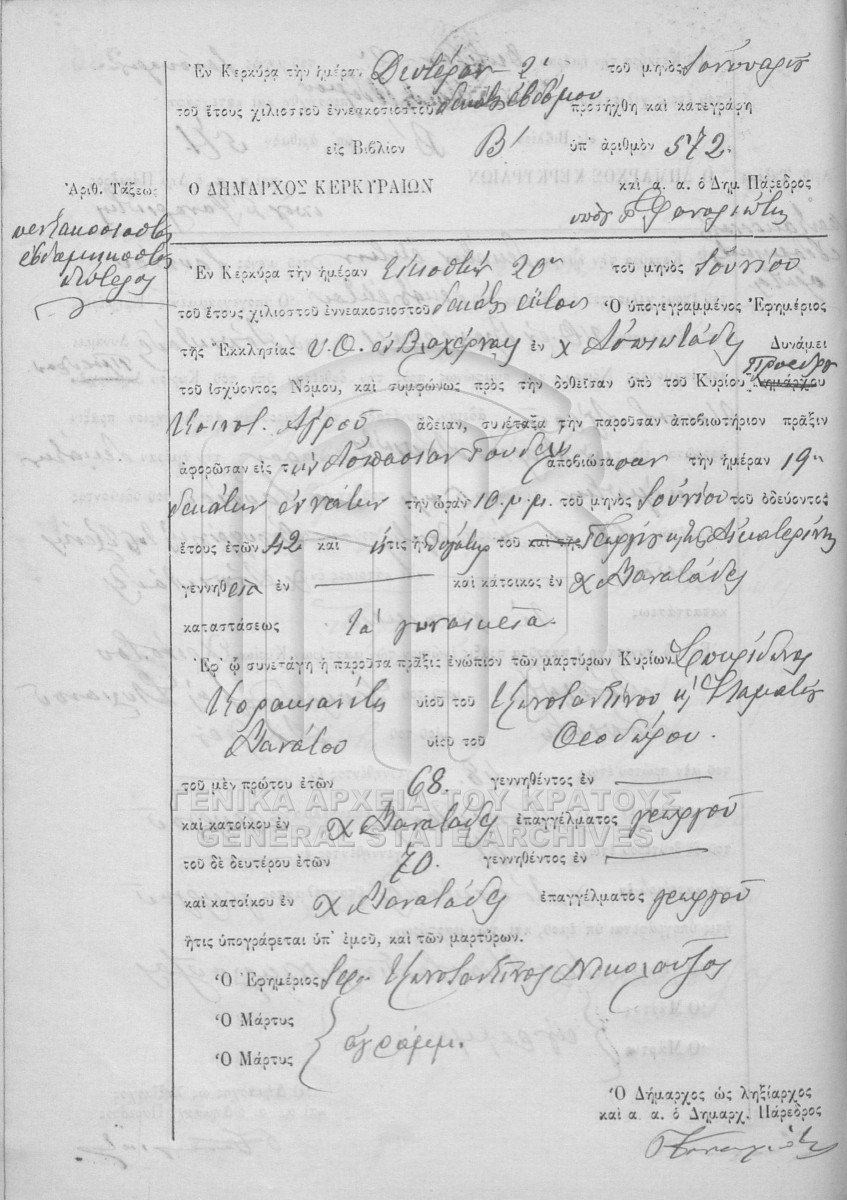 Ἐν Κερκύρᾳ τὴν ἡμέραν Δευτέραν 2α τοῦ μηνὸς Ἰανουαρίου
τοῦ ἔτους χιλιοστοῦ ἐννεακοσιοστοῦ δεκάτου ἑβδόμου προσήχθη καὶ κατεγράφη
εἰς Βιβλίον Β' ὑπ' ἀριθμὸν 572.
Ἀριθ. Τάξεως Ο ΔΗΜΑΡΧΟΣ ΚΕΡΚΥΡΑΙΩΝ καὶ α. α. ὁ Δημ Πάρεδρος
πεντακοσιοστὸς
ἑβδομηκοστὸς
δεύτερος
Ἐν Κερκύρᾳ τὴν ἡμέραν εἰκοστὴν 20ην τοῦ μηνὸς Ἰουνίου
τοῦ ἔτους χιλιοστοῦ ἐννεακοσιοστοῦ δεκάτου ἕκτου Ὁ ὑπογεγραμμένος Ἐφημέριος
τῆς Ἐκκλησίας Υ. Θ. ἐν χ Δυνάμει
τοῦ ἰσχύοντος Νόμου, καὶ συμφώνως πρὸς τὴν δοθεῖσαν ὑπὸ τοῦ Κυρίου Δημάρχου Προέδρου
Κοινοτ. Ἀγροῦ ἄδειαν, συνέταξα τὴν παροῦσαν ἀποβιωτήριον πρᾶξιν
ἀφορῶσαν εἰς τὴν Ἀσπασίαν ἀποβιώσασαν τὴν ἡμέραν 19ην
δεκάτην ἐννάτην τὴν ὥραν 10 μ.μ. τοῦ μηνὸς Ἰουνίου τοῦ ὁδεύοντος
ἔτους ἐτῶν 42 καὶ ἥτις ἦ θυγάτηρ τοῦ καὶ τῆς Γεωργίου κ τῆς Αἰκατερίνης
γεννηθεῖσα ἐν — καὶ κάτοικος ἐν χ Βανατάδες
καταστάσεως τὰ γυναικεῖα.
Ἐφ' ᾧ συνετάγη ἡ παροῦσα πρᾶξις ἐνώπιον τῶν μαρτύρων Κυρίων Σπυρίδωνος
Κορακιανίτη υἱοῦ τοῦ Κωνσταντίνου κ Σταματίου
Βανάτου υἱοῦ τοῦ Θεοδώρου.
τοῦ μὲν πρώτου ἐτῶν 68. γεννηθέντος ἐν —
ΓΕΝΙΚΑ ΑΡΧΕΙΑ ΤΟΥ ΚΡΑΤΟΥΣ
καὶ κατοίκου ἐν χ Βανατάδες ἐπαγγέλματος γεωργοῦ
GENERAL STATE ARCHIVES
τοῦ δὲ δευτέρου ἐτῶν 70. γεννηθέντος ἐν —
καὶ κατοίκου ἐν χ Βανατάδες ἐπαγγέλματος γεωργοῦ
ἥτις ὑπογράφεται ὑπ' ἐμοῦ, καὶ τῶν μαρτύρων.
Ὁ Ἐφημέριος Ἱερ. Κωνσταντῖνος Νικολοῦζος
Ὁ Μάρτυς
Ὁ Μάρτυς } ἀγράμμ.
Ὁ Δήμαρχος ὡς ληξίαρχος
καὶ α. α. ὁ Δημαρχ. Πάρεδρος